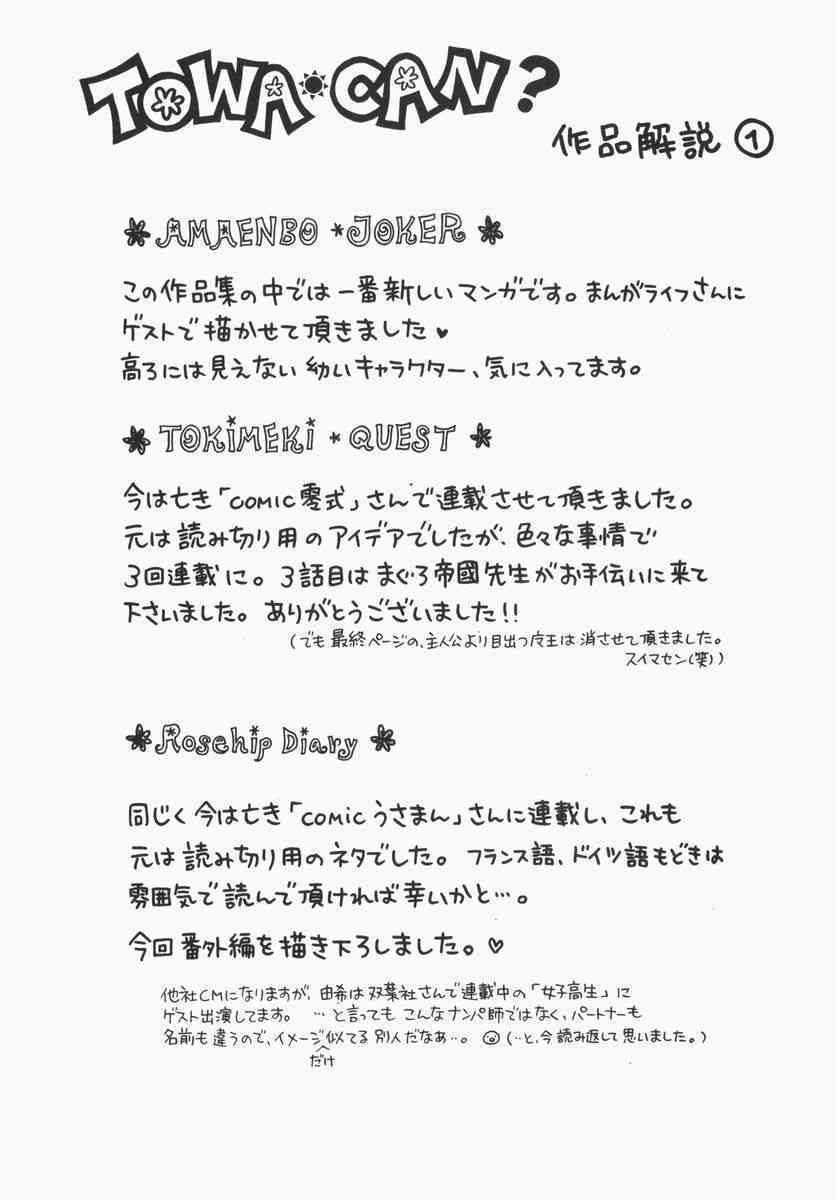 TOWA CAN?
作品解説 ①
AMAENBO JOKER
この作品集の中では一番新しいマンガです。まんがライフさんに
ゲストで描かせて頂きました♥
高ろには見えない幼いキャラクター、気に入ってます。
TOKiMEKi QUEST
今は亡き「COMIC零式」さんで連載させて頂きました。
元は読み切り用のアイデアでしたが、色々な事情で
3回連載に。3話目はまぐろ帝國先生がお手伝いに来て
下さいました。ありがとうございました!!
(でも最終ページの、主人公より目出つ皮王は消させて頂きました。
スイマセン(笑))
Rosehip Diary
同じく今は亡き「comicうさまん」さんに連載し、これも
元は読み切り用のネタでした。フランス語、ドイツ語もどきは
雰囲気で読んで頂ければ幸いかと…。
今回番外編を描き下ろしました。♡
他社CMになりますが、由希は双葉社さんで連載中の「女子高生」に
ゲスト出演してます。…と言ってもこんなナンパ師ではなく、パートナーも
名前も違うので、イメージだけ似てる別人だなあ…。(…と、今読み返して思いました。)